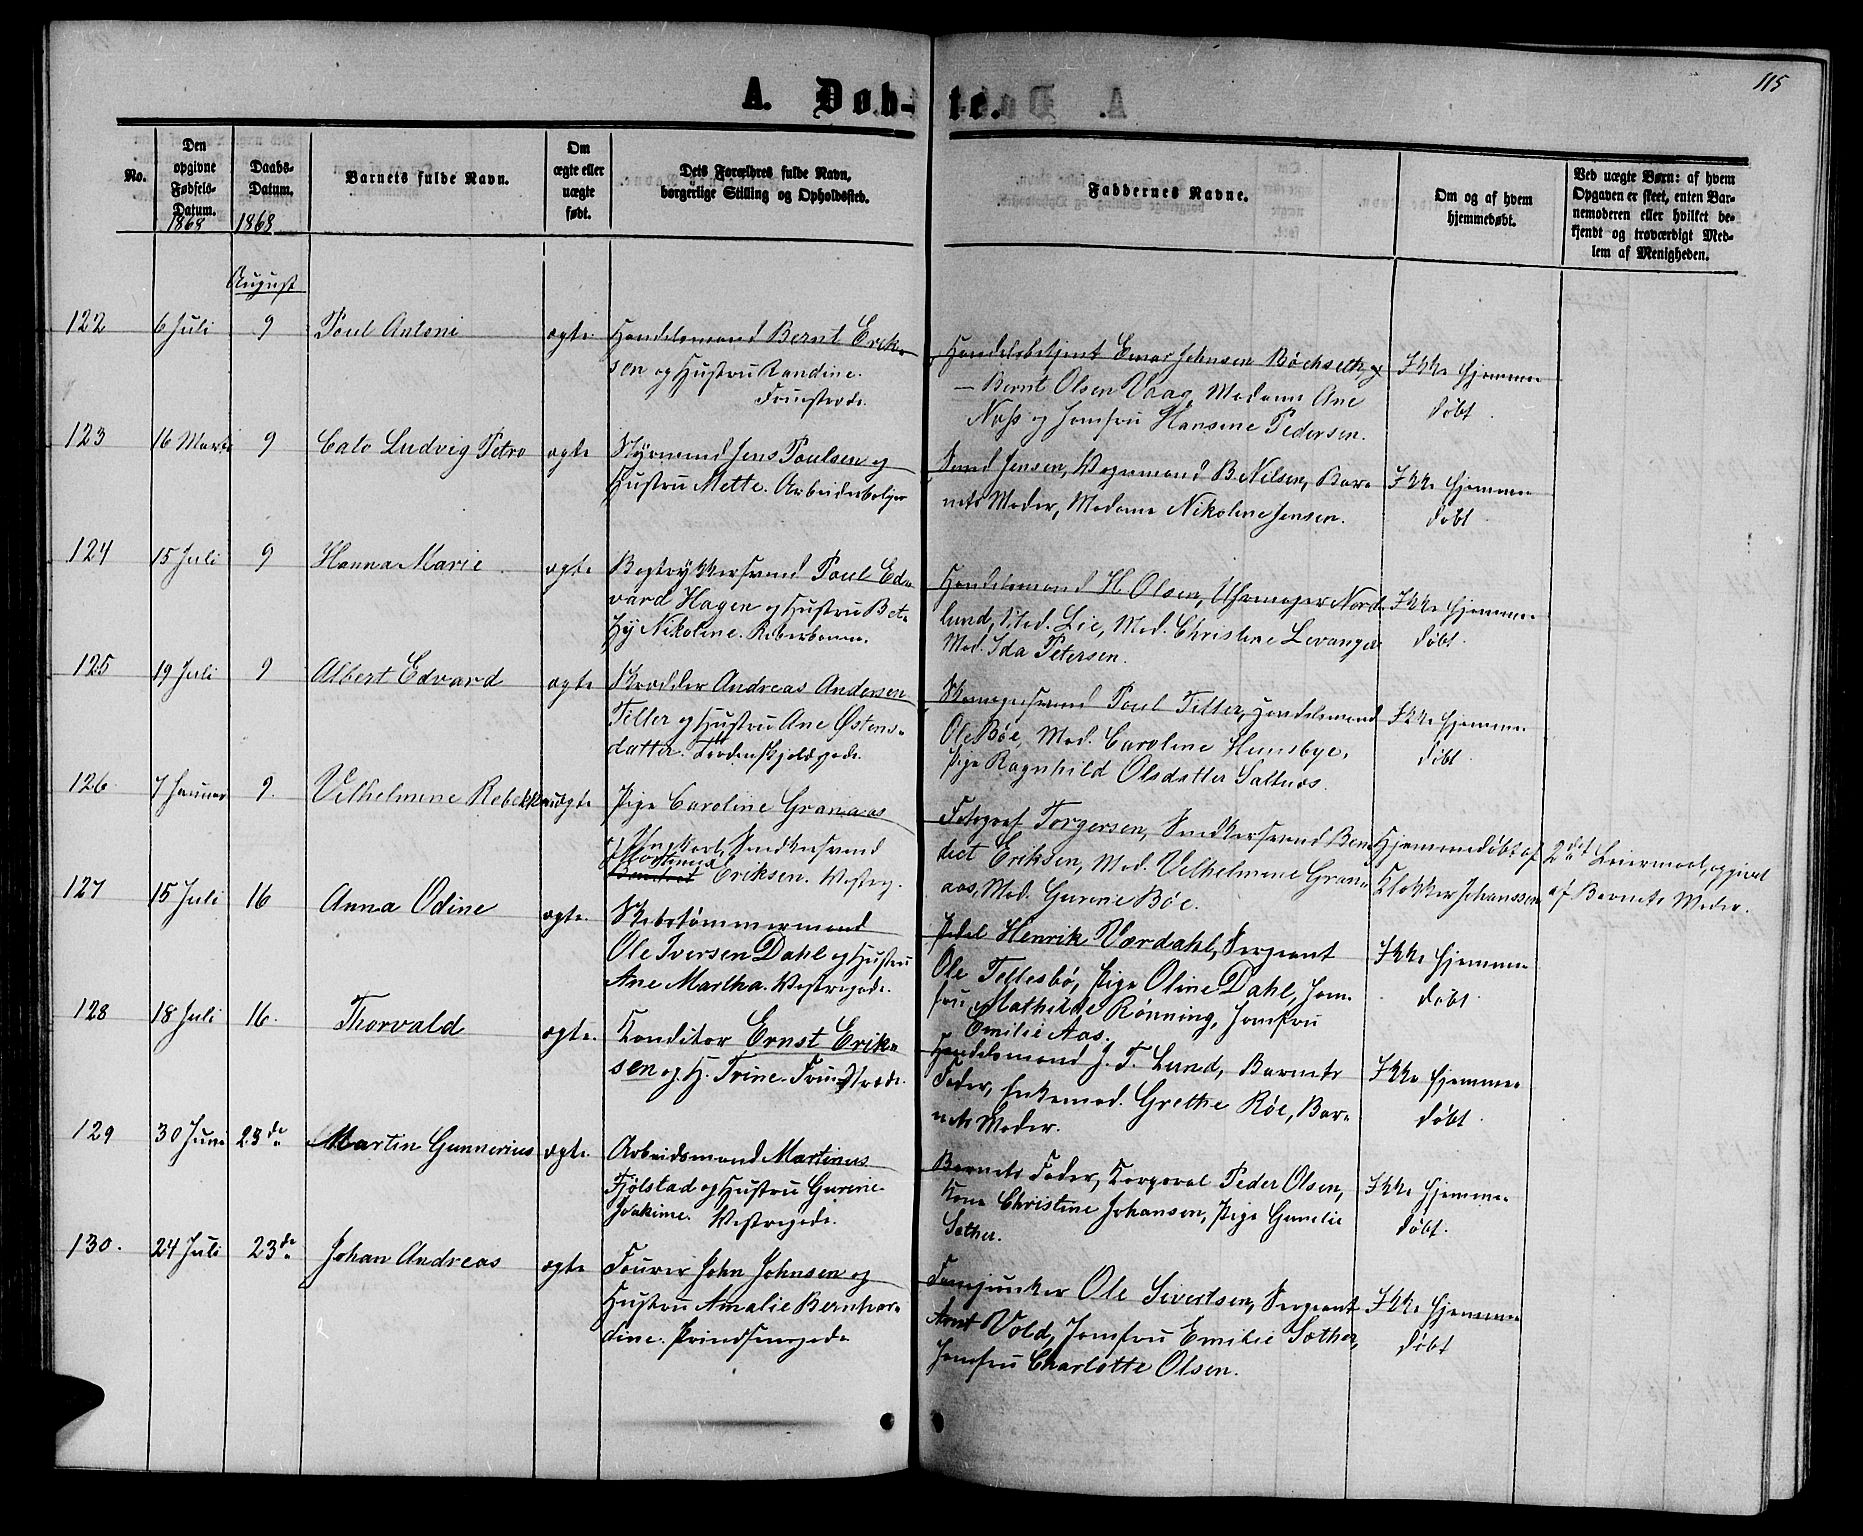 115
A. Døb-te.
No.
Den opgivne Fødsels-Datum.
1868
Daabs-Datum.
1868
Barnets fulde Navn.
Om ægte eller uægte født.
Dets Forældres fulde Navn, borgerlige Stilling og Opholdssted.
Faddernes Navne.
Om og af hvem hjemmedøbt.
Ved uægte Børn: af hvem Opgaven er skeet, enten Barnemoderen eller hvilket bekjendt og troværdigt Medlem af Menigheden.
August
122 6 Juli 9 Poul Antoni ægte Handelsmand Bernt Erik-
sen og Hustru Randine.
Handelsbetjent Einar Johnsen Böchseth, og
— Bernt Olsen Vaag, Madam Ane
Næss og Jomfru Hansene Pedersen.
Ikke hjemme-
døbt.
123 16 Marts 9 Calo Ludvig Petro ægte Styrmand Jens Poulsen og
Hustru Mette. Arbeiderbolger
Svend Jensen, Vognmand B. Nilsen, Bar-
nets Moder, Madame Nikoline Jensen.
Ikke hjemme-
døbt
124 15 Juli 9 Hanna Marie ægte Bogtrykkersvend Poul Ed-
vard Hagen og Hustru Bet-
hy Nikoline. Reberbanen.
Handelsmand H. Olsen, Uhrmager Nord-
lund, Mad. Lie, Mad. Christine Levanger
Mad. Ida Petersen.
Ikke hjemme-
døbt.
125 19 Juli 9 Albert Edvard ægte Skrædder Andreas Andersen
Tiller og Hustru Ane Østens-
datter. Tordenskjoldsgade.
Skomagersvend Poul Tiller, Handelsmand
Ole Bøe, Mad. Caroline Hunsbye,
Pige Ragnhild Olsdatter Saltnæs.
Ikke hjemme-
døbt.
126 7 Januar 9. Vilhelmine Rebekka uægte Pige Caroline Granaas
Ungkarl, Snedkersvend
Eriksen. Vestreg.
Fotograf Torgersen, Snedkersvend Bene-
dict Eriksen, Mad. Vilhelmine Gran-
aas, Mad. Gurine Bøe.
Hjemmedøbt af
Klokker Johanssen
2det Leiermaal, opgivet
af Barnets Moder.
127 15 Juli 16 Anna Odine ægte. Skibstømmermand
Ole Iversen Dahl og Hustru
Ane Martha. Vestregade.
Pedel Henrik Værdahl, Sergeant
Ole Tellesbö, Pige Oline Dahl, Jom-
fru Mathilde Rønning, Jomfru
Emilie Aas.
Ikke hjemme-
døbt.
128 18 Juli 16. Thorvald ægte. Konditor Ernst Erik-
sen og H. Trine.
Handelsmand J. T. Lund, Barnets
Fader, Enkemad. Grethe Röe, Bar-
nets Moder.
Ikke hjemme-
døbt.
129 30 Juni 23de Martin Gunnerius ægte. Arbeidsmand Martinus
Fjølstad og Hustru Gurine
Joakime. Vestregade.
Barnets Fader, Korporal Peder Olsen,
Kone Christine Johansen, Pige Gunelie
Sæther.
Ikke hjemme-
døbt.
130. 24 Juli 23de Johan Andreas ægte Fourer John Johnsen og
Hustru Amalie Bernhar-
dine. Prindsensgade
Fanejunker Ole Sivertsen, Sergeant
Arnt Vold, Jomfru Emilie Sæther,
Jomfru Charlotte Olsen.
Ikke hjemme-
døbt